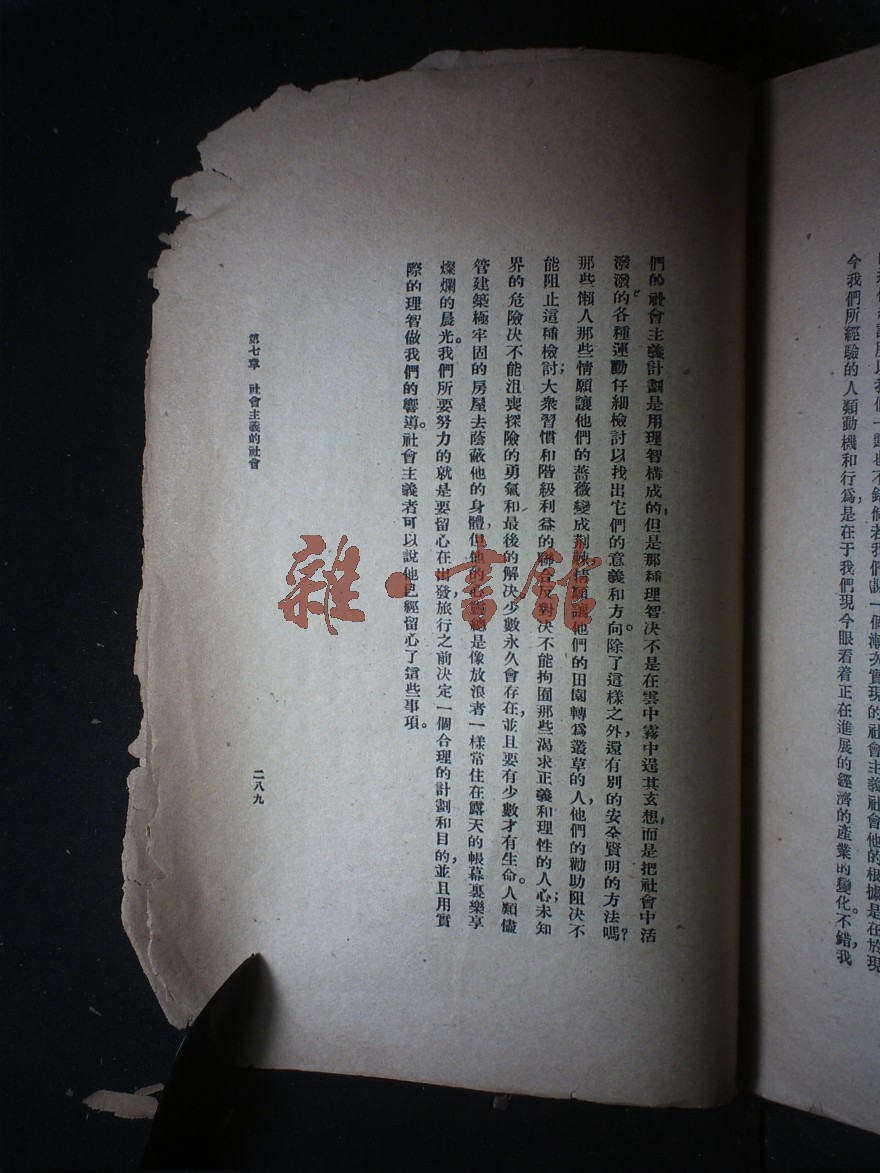 今我們所經驗的人類動機和行爲，是在于我們現今眼看着正在進展的經濟的產業的變化。不錯，我
們的社會主義計劃是用理智構成的，但是那種理智決不是在雲中霧中逞其玄想，而是把社會中活
潑潑的各種運動仔細檢討以找出它們的意義和方向。除了這樣之外，還有別的安全賢明的方法嗎？
那些懶人那些情願讓他們的薔薇變成荆棘情願讓他們的田園轉爲叢草的人，他們的勸助阻決不
能阻止這種檢討；大衆習慣和階級利益的聯合反對決不能拘囿那些渴求正義和理性的人心；未知
界的危險決不能沮喪探險的勇氣和最後的解決少數永久會存在，並且要有少數才有生命。人類儘
管建築極牢固的房屋去蔭蔽他的身體，但他的心靈總是像放浪者一樣常住在露天的帳幕裏樂享
燦爛的晨光。我們所要努力的就是要留心在出發旅行之前決定一個合理的計劃和目的，並且用實
際的理智做我們的嚮導。社會主義者可以說他已經留心了這些事項。
第七章 社會主義的社會
二八九
雜·書館